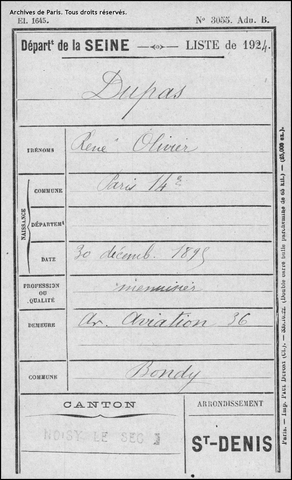 Archives de Paris. Tous droits réservés.
El. 1645. N° 3055. Adm. B.
Départ' de la SEINE LISTE de 1924
Dupas
PRÉNOMS René Olivier
NAISSANCE
COMMUNE Paris 14e
DÉPARTEMt
DATE 30 décemb. 1895
PROFESSION
OU
QUALITÉ menuisier
DEMEURE Av. Aviation 36
COMMUNE Bondy
CANTON
NOISY LE SEC
ARRONDISSEMENT
ST-DENIS
Paris. — Imp. Paul Dupont (Cl.).